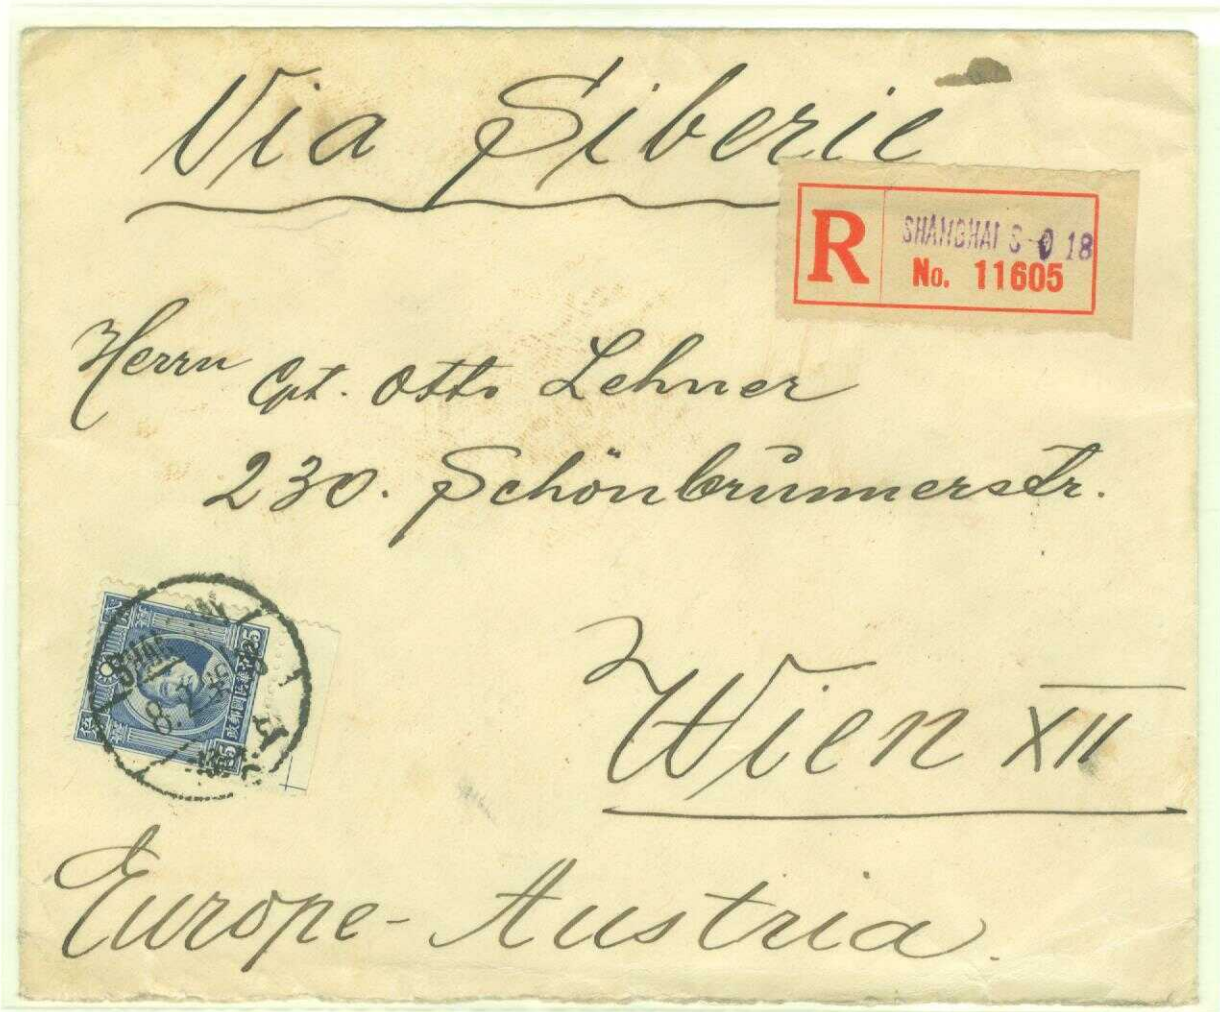 Via Siberie
R
SHANGHAI S-O 18
No. 11605
Herrn Cpt. Otto Lehner
230. Schönbrunnerstr.
Wien XII
25
25
Europe-Austria.